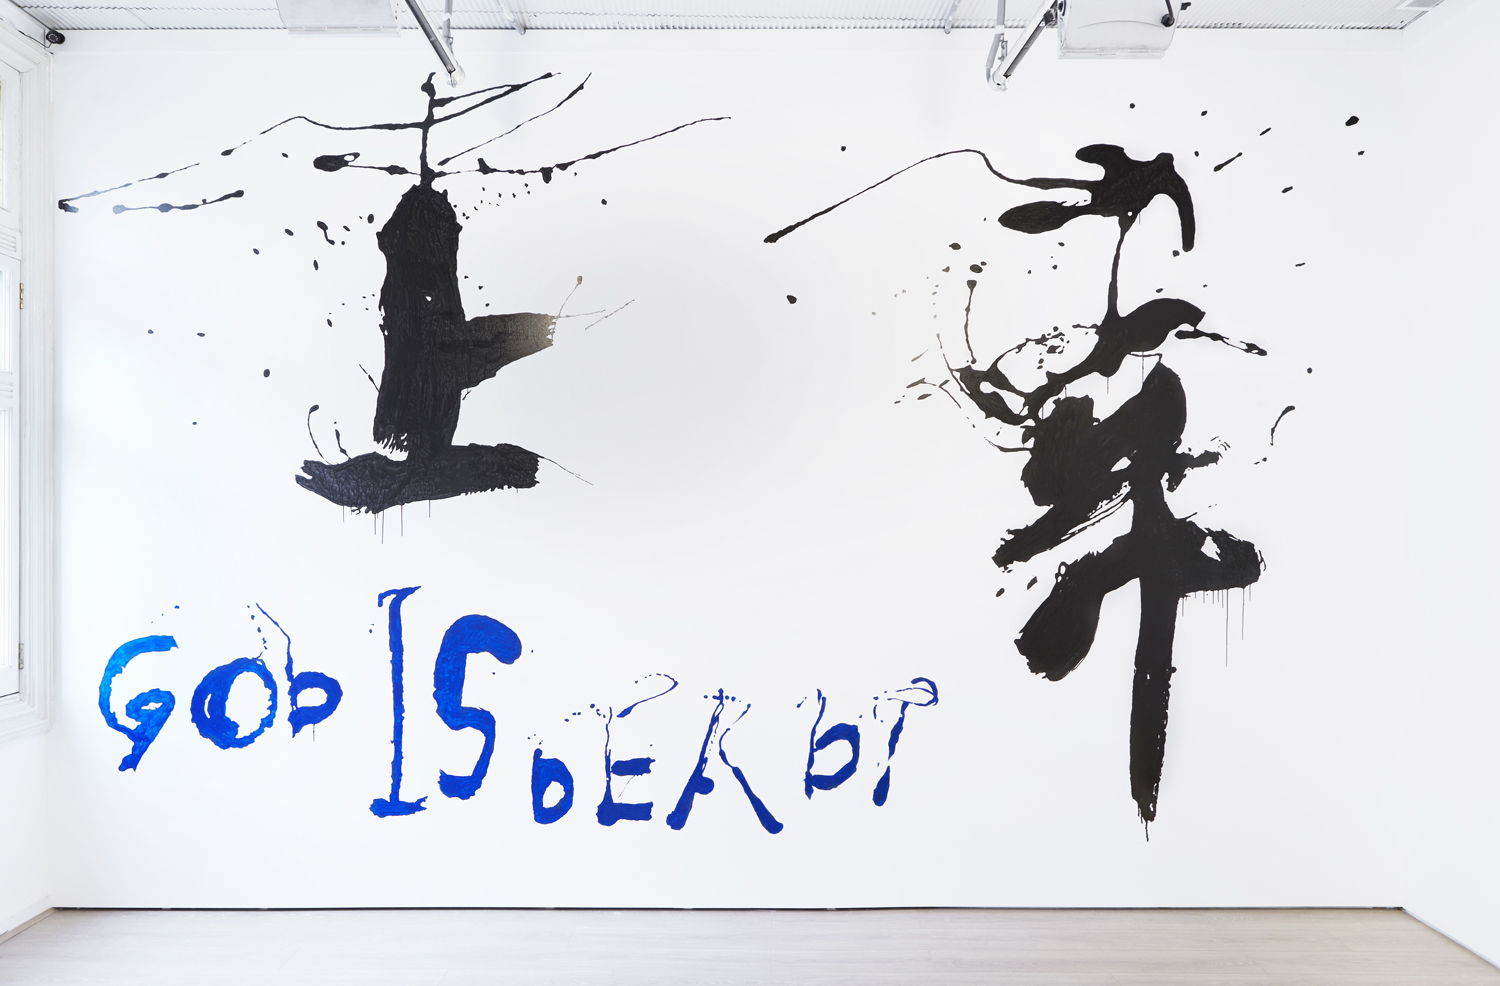 上帝
GOD IS DEAD